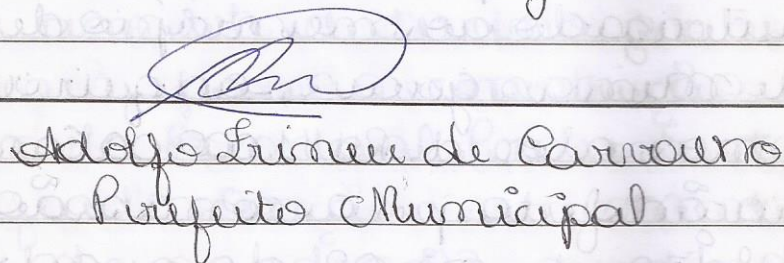 Adolfo Irineu de Carvalho
Prefeito Municipal